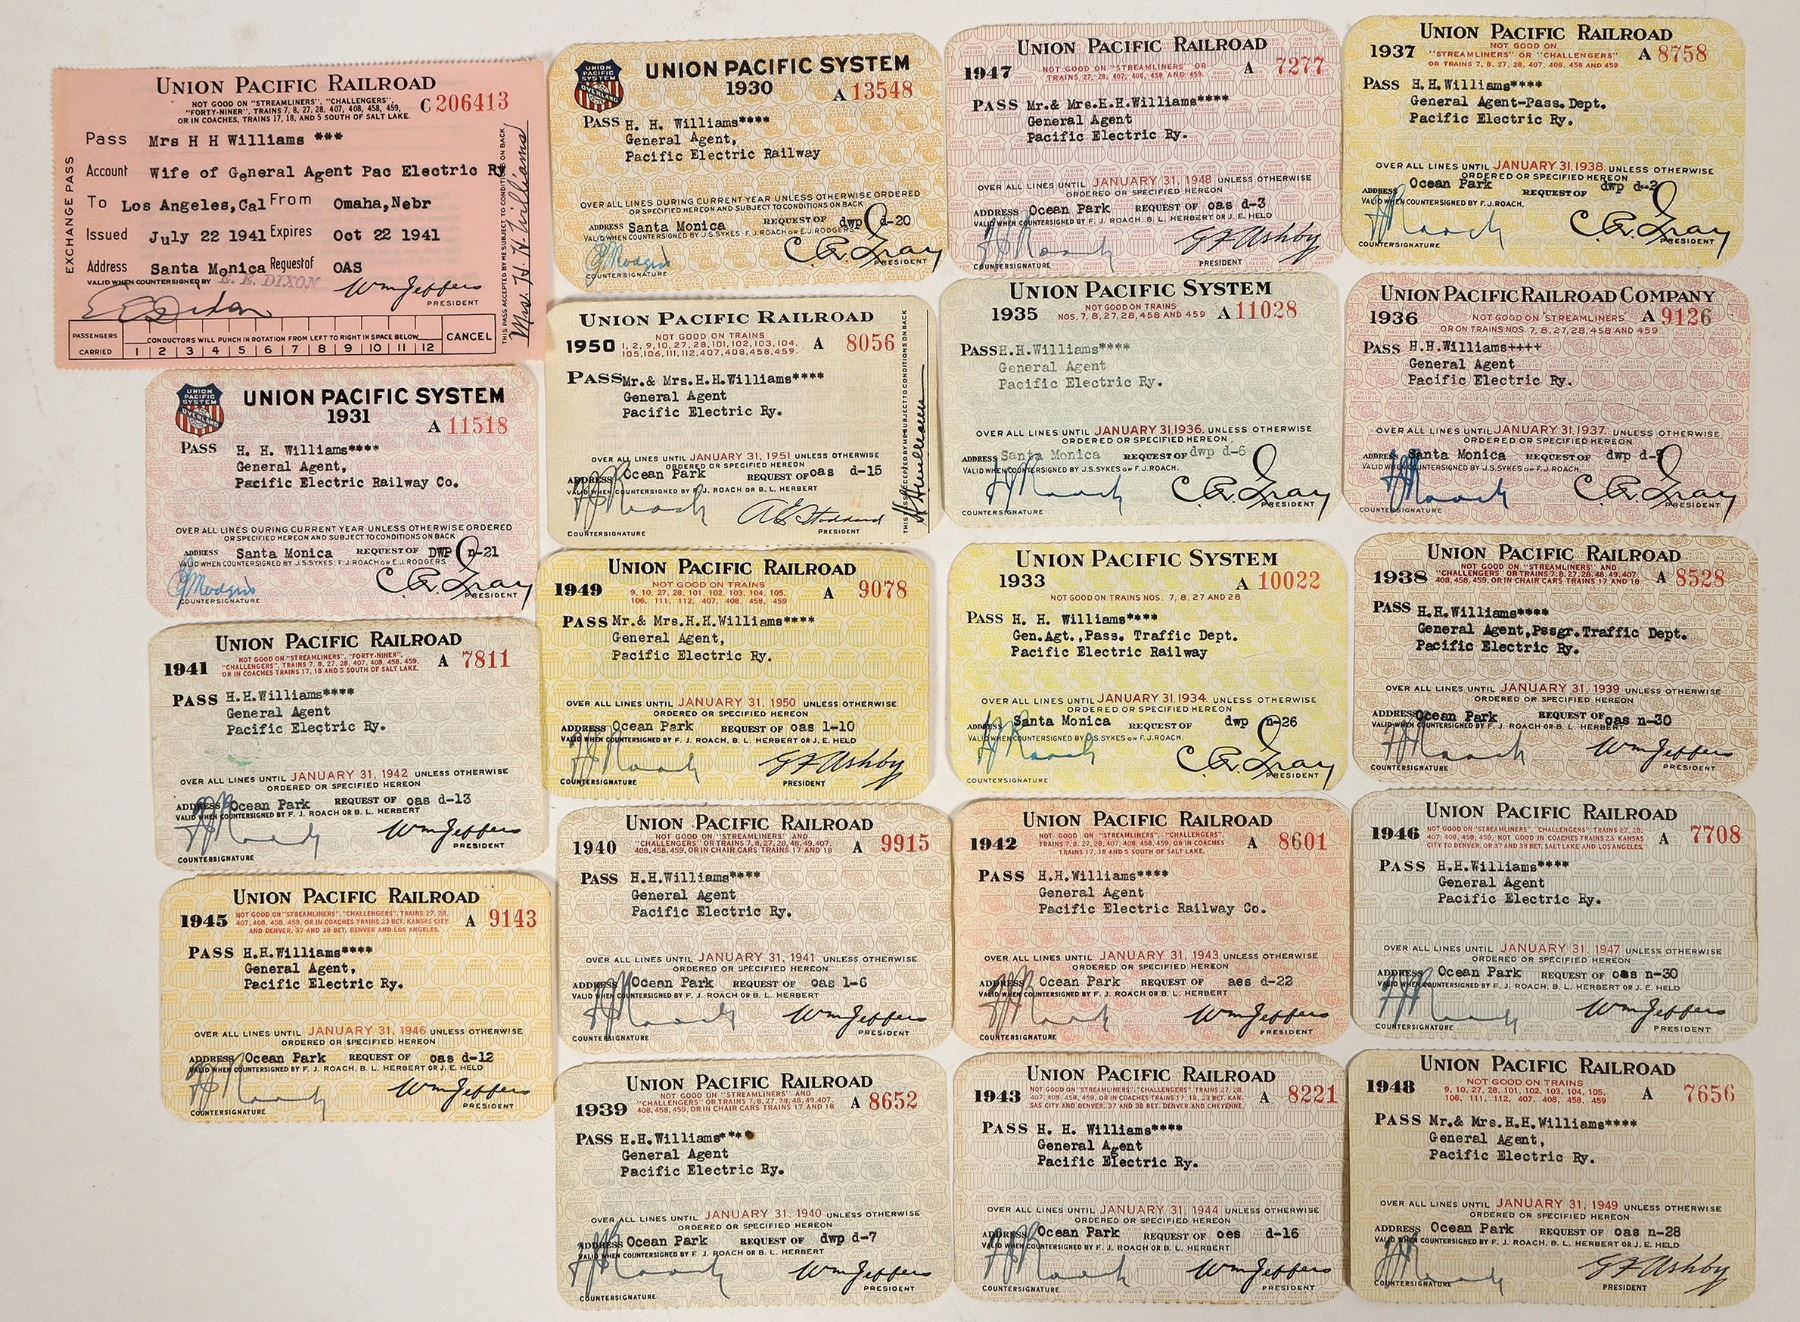 UNION PACIFIC RAILROAD
NOT GOOD ON "STREAMLINERS", "CHALLENGERS",
"FORTY-NINER", TRAINS 7, 8, 27, 28, 407, 408, 458, 459,
OR IN COACHES, TRAINS 17, 18, AND 5 SOUTH OF SALT LAKE.
C 206413
Pass Mrs H H Williams ***
Account Wife of General Agent Pac Electric Ry
To Los Angeles,Cal From Omaha,Nebr
Issued July 22 1941 Expires Oct 22 1941
Address Santa Monica Request of OAS
VALID WHEN COUNTERSIGNED BY E. E. DIXON
Wm Jeffers
PRESIDENT
PASSENGERS CARRIED
CONDUCTORS WILL PUNCH IN ROTATION FROM LEFT TO RIGHT IN SPACE BELOW
1 2 3 4 5 6 7 8 9 10 11 12
CANCEL
EXCHANGE PASS
THIS PASS ACCEPTED BY ME SUBJECT TO CONDITIONS ON BACK
Mrs. H. H. Williams
UNION PACIFIC SYSTEM
OVERLAND
UNION PACIFIC SYSTEM
1931
A 11518
PASS H. H. Williams****
General Agent,
Pacific Electric Railway Co.
OVER ALL LINES DURING CURRENT YEAR UNLESS OTHERWISE ORDERED
OR SPECIFIED HEREON AND SUBJECT TO CONDITIONS ON BACK
ADDRESS Santa Monica REQUEST OF DWP n-21
VALID WHEN COUNTERSIGNED BY J.S.SYKES, F.J.ROACH OR E.J.RODGERS
COUNTERSIGNATURE
C R Gray
PRESIDENT
UNION PACIFIC RAILROAD
1941
NOT GOOD ON "STREAMLINERS", "FORTY-NINER",
"CHALLENGERS", TRAINS 7, 8, 27, 28, 407, 408, 458, 459,
OR IN COACHES TRAINS 17, 18 AND 5 SOUTH OF SALT LAKE.
A 7811
PASS H.H.Williams****
General Agent
Pacific Electric Ry.
OVER ALL LINES UNTIL JANUARY 31, 1942 UNLESS OTHERWISE
ORDERED OR SPECIFIED HEREON
ADDRESS Ocean Park REQUEST OF oas d-13
VALID WHEN COUNTERSIGNED BY F. J. ROACH OR B. L. HERBERT
F J Roach
COUNTERSIGNATURE
Wm Jeffers
PRESIDENT
UNION PACIFIC RAILROAD
1945
NOT GOOD ON "STREAMLINERS", "CHALLENGERS", TRAINS 27, 28,
407, 408, 458, 459, OR IN COACHES TRAINS 23 BET. KANSAS CITY
AND DENVER, 37 AND 38 BET. DENVER AND LOS ANGELES.
A 9143
PASS H.H.Williams****
General Agent,
Pacific Electric Ry.
OVER ALL LINES UNTIL JANUARY 31, 1946 UNLESS OTHERWISE
ORDERED OR SPECIFIED HEREON
ADDRESS Ocean Park REQUEST OF oas d-12
VALID WHEN COUNTERSIGNED BY F. J. ROACH, B. L. HERBERT OR J. E. HELD
F J Roach
COUNTERSIGNATURE
Wm Jeffers
PRESIDENT
UNION PACIFIC SYSTEM
OVERLAND
UNION PACIFIC SYSTEM
1930
A 13548
PASS H. H. Williams****
General Agent,
Pacific Electric Railway
OVER ALL LINES DURING CURRENT YEAR UNLESS OTHERWISE ORDERED
OR SPECIFIED HEREON AND SUBJECT TO CONDITIONS ON BACK
ADDRESS Santa Monica REQUEST OF dwp d-20
VALID WHEN COUNTERSIGNED BY J.S.SYKES, F.J.ROACH OR E.J.RODGERS
COUNTERSIGNATURE
C R Gray
PRESIDENT
UNION PACIFIC RAILROAD
1950
NOT GOOD ON TRAINS
1, 2, 9, 10, 27, 28, 101, 102, 103, 104,
105, 106, 111, 112, 407, 408, 458, 459.
A 8056
PASS Mr.& Mrs.H.H.Williams****
General Agent
Pacific Electric Ry.
OVER ALL LINES UNTIL JANUARY 31, 1951 UNLESS OTHERWISE
ORDERED OR SPECIFIED HEREON
ADDRESS Ocean Park REQUEST OF oas d-15
VALID WHEN COUNTERSIGNED BY F. J. ROACH OR B. L. HERBERT
F J Roach
COUNTERSIGNATURE
A E Stoddard
PRESIDENT
THIS PASS ACCEPTED BY ME SUBJECT TO CONDITIONS ON BACK
H H Williams
UNION PACIFIC RAILROAD
1949
NOT GOOD ON TRAINS
9, 10, 27, 28, 101, 102, 103, 104, 105,
106, 111, 112, 407, 408, 458, 459
A 9078
PASS Mr.& Mrs.H.H.Williams****
General Agent,
Pacific Electric Ry.
OVER ALL LINES UNTIL JANUARY 31, 1950 UNLESS OTHERWISE
ORDERED OR SPECIFIED HEREON
ADDRESS Ocean Park REQUEST OF oas 1-10
VALID WHEN COUNTERSIGNED BY F. J. ROACH, B. L. HERBERT OR J. E. HELD
F J Roach
COUNTERSIGNATURE
G F Ashby
PRESIDENT
UNION PACIFIC RAILROAD
1940
NOT GOOD ON "STREAMLINERS" AND
"CHALLENGERS" OR TRAINS 7, 8, 27, 28, 48, 49, 407,
408, 458, 459, OR IN CHAIR CARS TRAINS 17 AND 18
A 9915
PASS H.H.Williams****
General Agent
Pacific Electric Ry.
OVER ALL LINES UNTIL JANUARY 31, 1941 UNLESS OTHERWISE
ORDERED OR SPECIFIED HEREON
ADDRESS Ocean Park REQUEST OF oas 1-6
VALID WHEN COUNTERSIGNED BY F. J. ROACH OR B. L. HERBERT
F J Roach
COUNTERSIGNATURE
Wm Jeffers
PRESIDENT
UNION PACIFIC RAILROAD
1939
NOT GOOD ON "STREAMLINERS" AND
"CHALLENGERS" OR TRAINS 7, 8, 27, 28, 48, 49, 407,
408, 458, 459, OR IN CHAIR CARS TRAINS 17 AND 18
A 8652
PASS H.H.Williams****
General Agent
Pacific Electric Ry.
OVER ALL LINES UNTIL JANUARY 31, 1940 UNLESS OTHERWISE
ORDERED OR SPECIFIED HEREON
ADDRESS Ocean Park REQUEST OF dwp d-7
VALID WHEN COUNTERSIGNED BY F. J. ROACH OR B. L. HERBERT
F J Roach
COUNTERSIGNATURE
Wm Jeffers
PRESIDENT
UNION PACIFIC RAILROAD
1947
NOT GOOD ON "STREAMLINERS" OR
TRAINS 27, 28, 407, 408, 458 AND 459.
A 7277
PASS Mr.& Mrs.H.H.Williams****
General Agent
Pacific Electric Ry.
OVER ALL LINES UNTIL JANUARY 31, 1948 UNLESS OTHERWISE
ORDERED OR SPECIFIED HEREON
ADDRESS Ocean Park REQUEST OF oas d-3
VALID WHEN COUNTERSIGNED BY F. J. ROACH, B. L. HERBERT OR J. E. HELD
F J Roach
COUNTERSIGNATURE
G F Ashby
PRESIDENT
UNION PACIFIC SYSTEM
1935
NOT GOOD ON TRAINS
NOS. 7, 8, 27, 28, 458 AND 459
A 11028
PASS H.H.Williams****
General Agent
Pacific Electric Ry.
OVER ALL LINES UNTIL JANUARY 31, 1936. UNLESS OTHERWISE
ORDERED OR SPECIFIED HEREON
ADDRESS Santa Monica REQUEST OF dwp d-6
VALID WHEN COUNTERSIGNED BY J.S.SYKES OR F.J.ROACH.
F J Roach
COUNTERSIGNATURE
C R Gray
PRESIDENT
UNION PACIFIC SYSTEM
1933
A 10022
NOT GOOD ON TRAINS NOS. 7, 8, 27 AND 28
PASS H. H. Williams****
Gen.Agt.,Pass. Traffic Dept.
Pacific Electric Railway
OVER ALL LINES UNTIL JANUARY 31, 1934. UNLESS OTHERWISE
ORDERED OR SPECIFIED HEREON
ADDRESS Santa Monica REQUEST OF dwp n-26
VALID WHEN COUNTERSIGNED BY J.S.SYKES OR F.J.ROACH.
F J Roach
COUNTERSIGNATURE
C R Gray
PRESIDENT
UNION PACIFIC RAILROAD
1942
NOT GOOD ON "STREAMLINERS", "CHALLENGERS",
TRAINS 7, 8, 27, 28, 407, 408, 458, 459, OR IN COACHES
TRAINS 17, 18 AND 5 SOUTH OF SALT LAKE.
A 8601
PASS H.H.Williams****
General Agent
Pacific Electric Railway Co.
OVER ALL LINES UNTIL JANUARY 31, 1943 UNLESS OTHERWISE
ORDERED OR SPECIFIED HEREON
ADDRESS Ocean Park REQUEST OF aes d-22
VALID WHEN COUNTERSIGNED BY F. J. ROACH OR B. L. HERBERT
F J Roach
COUNTERSIGNATURE
Wm Jeffers
PRESIDENT
UNION PACIFIC RAILROAD
1943
NOT GOOD ON "STREAMLINERS", "CHALLENGERS", TRAINS 27, 28,
407, 408, 458, 459, OR IN COACHES TRAINS 17, 18, 23 BET. KAN-
SAS CITY AND DENVER, 37 AND 38 BET. DENVER AND CHEYENNE.
A 8221
PASS H. H. Williams****
General Agent
Pacific Electric Ry.
OVER ALL LINES UNTIL JANUARY 31, 1944 UNLESS OTHERWISE
ORDERED OR SPECIFIED HEREON
ADDRESS Ocean Park REQUEST OF oes d-16
VALID WHEN COUNTERSIGNED BY F. J. ROACH OR B. L. HERBERT
F J Roach
COUNTERSIGNATURE
Wm Jeffers
PRESIDENT
UNION PACIFIC RAILROAD
1937
NOT GOOD ON
"STREAMLINERS" OR "CHALLENGERS"
OR TRAINS 7, 8, 27, 28, 407, 408, 458 AND 459
A 8758
PASS H.H.Williams****
General Agent-Pass. Dept.
Pacific Electric Ry.
OVER ALL LINES UNTIL JANUARY 31, 1938. UNLESS OTHERWISE
ORDERED OR SPECIFIED HEREON
ADDRESS Ocean Park REQUEST OF dwp d-2
VALID WHEN COUNTERSIGNED BY F.J. ROACH.
F J Roach
COUNTERSIGNATURE
C R Gray
PRESIDENT
UNION PACIFIC RAILROAD COMPANY
1936
NOT GOOD ON STREAMLINERS
OR ON TRAINS NOS. 7, 8, 27, 28, 458 AND 459
A 9126
PASS H.H.Williams++++
General Agent
Pacific Electric Ry.
OVER ALL LINES UNTIL JANUARY 31, 1937. UNLESS OTHERWISE
ORDERED OR SPECIFIED HEREON
ADDRESS Santa Monica REQUEST OF dwp
VALID WHEN COUNTERSIGNED BY J.S.SYKES OR F.J.ROACH.
F J Roach
COUNTERSIGNATURE
C R Gray
PRESIDENT
UNION PACIFIC RAILROAD
1938
NOT GOOD ON "STREAMLINERS" AND
"CHALLENGERS" OR TRAINS 7, 8, 27, 28, 48, 49, 407,
408, 458, 459, OR IN CHAIR CARS TRAINS 17 AND 18
A 8528
PASS H.H.Williams****
General Agent,Pssgr.Traffic Dept.
Pacific Electric Ry.
OVER ALL LINES UNTIL JANUARY 31, 1939 UNLESS OTHERWISE
ORDERED OR SPECIFIED HEREON
ADDRESS Ocean Park REQUEST OF oas n-30
VALID WHEN COUNTERSIGNED BY F. J. ROACH OR B. L. HERBERT
F J Roach
COUNTERSIGNATURE
Wm Jeffers
PRESIDENT
UNION PACIFIC RAILROAD
1946
NOT GOOD ON "STREAMLINERS", "CHALLENGERS", TRAINS 27, 28,
407, 408, 458, 459, NOT GOOD IN COACHES TRAINS 23 KANSAS
CITY TO DENVER, OR 37 AND 38 BET. SALT LAKE AND LOS ANGELES.
A 7708
PASS H.H.Williams****
General Agent
Pacific Electric Ry.
OVER ALL LINES UNTIL JANUARY 31, 1947 UNLESS OTHERWISE
ORDERED OR SPECIFIED HEREON
ADDRESS Ocean Park REQUEST OF oas n-30
VALID WHEN COUNTERSIGNED BY F. J. ROACH, B. L. HERBERT OR J. E. HELD
F J Roach
COUNTERSIGNATURE
Wm Jeffers
PRESIDENT
UNION PACIFIC RAILROAD
1948
NOT GOOD ON TRAINS
9, 10, 27, 28, 101, 102, 103, 104, 105,
106, 111, 112, 407, 408, 458, 459
A 7656
PASS Mr.& Mrs.H.H.Williams****
General Agent,
Pacific Electric Ry.
OVER ALL LINES UNTIL JANUARY 31, 1949 UNLESS OTHERWISE
ORDERED OR SPECIFIED HEREON
ADDRESS Ocean Park REQUEST OF oas n-28
VALID WHEN COUNTERSIGNED BY F. J. ROACH, B. L. HERBERT OR J. E. HELD
F J Roach
COUNTERSIGNATURE
G F Ashby
PRESIDENT